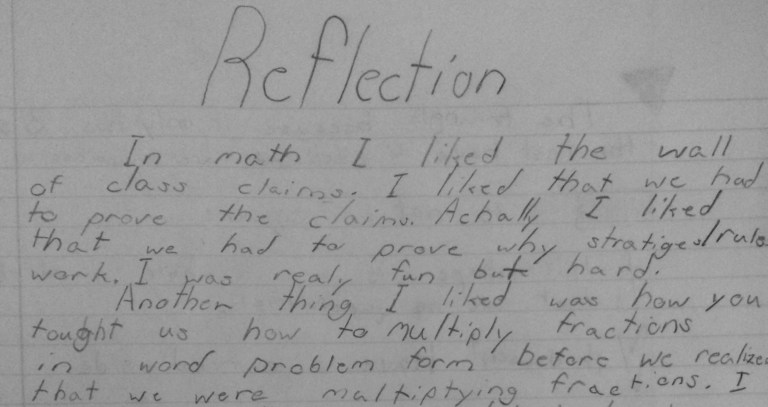 Reflection
In math I liked the wall
of class claims. I liked that we had
to prove the claims. Achally I liked
that we had to prove why stratiges/rule
work. I was realy fun but hard.
Another thing I liked was how you
tought us how to multiply fractions
in word problem form before we realize
that we were multiptying fractions. I